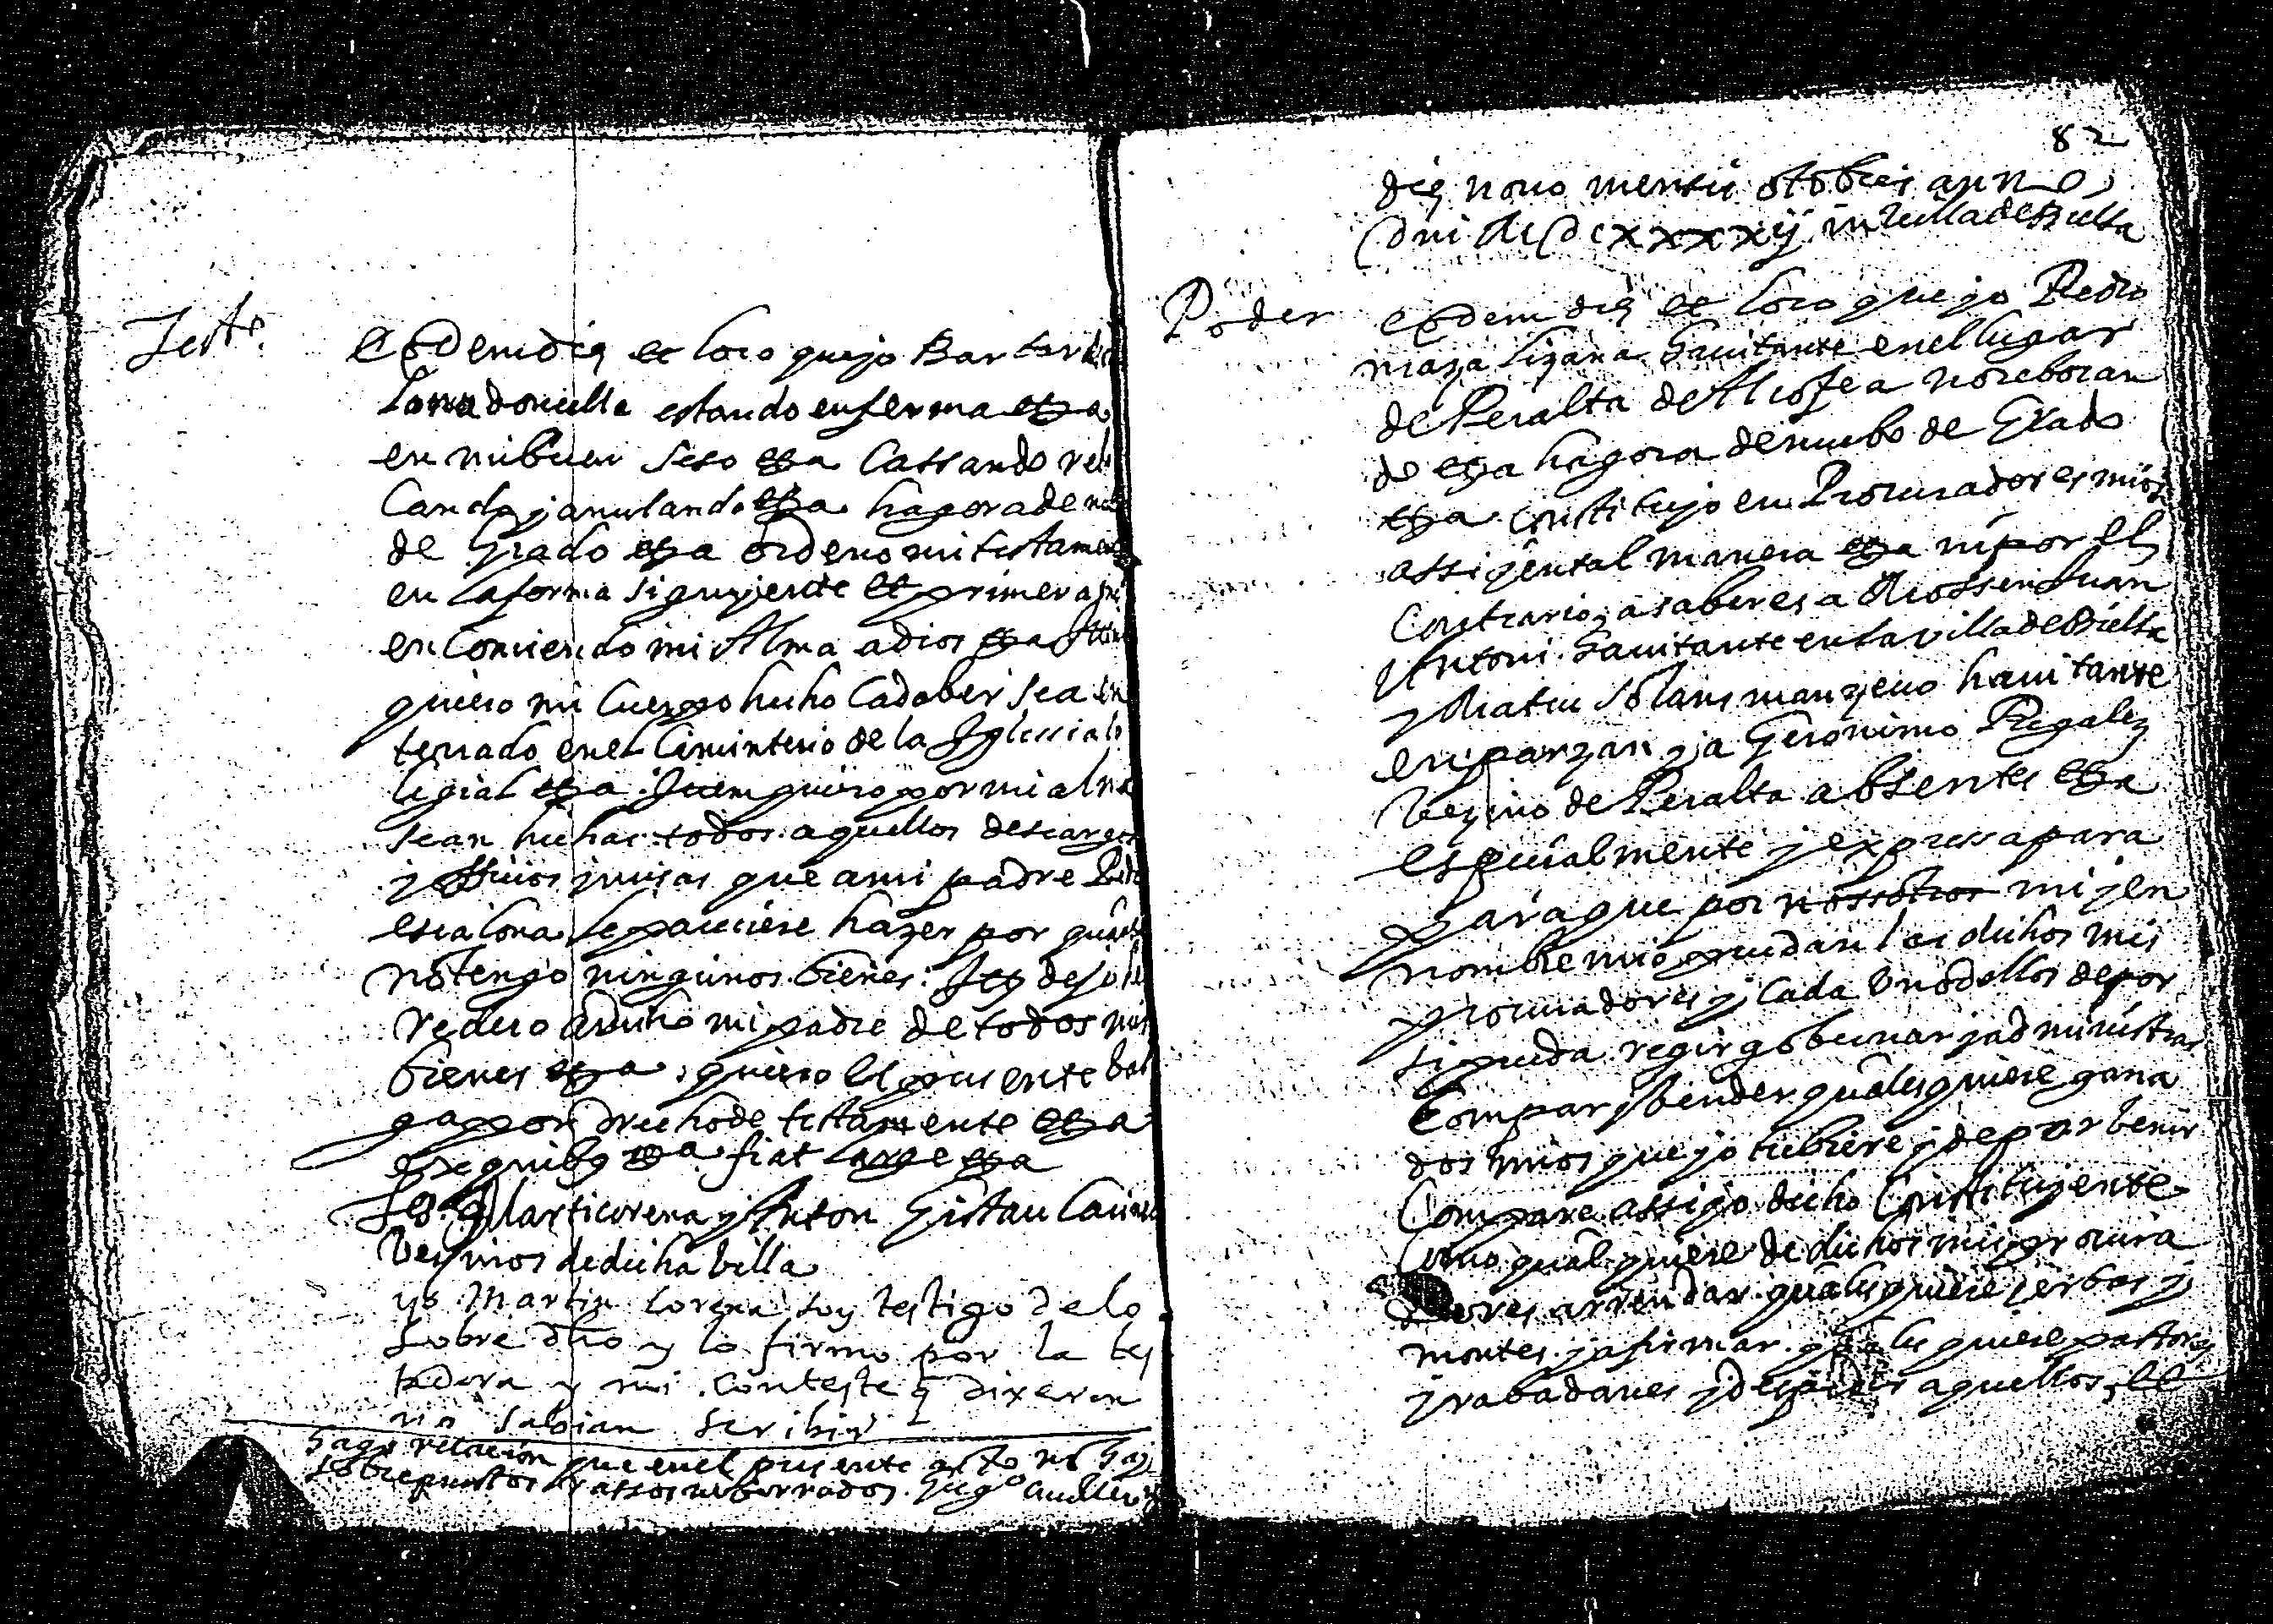 Testo.
Eodem die et loco que yo Barbara
Lona doncella estando enferma etza
en mi buen seso etza Cassando rebo
cando y anulando etza hagora de nu
de Grado etza ordeno mi testamen
en la forma siguyente et primerami
encomiendo mi Alma a dios etza Item
quiero mi Cuerpo hecho Cadaber sea en
terrado en el Ciminterio de la Iglesia
legial etza. Item quiero por mi alma
sean hechas todos aquellos descargos
y officios y missas que a mi padre Pedro
escalona le pareciere hazer por que
no tengo ningunos bienes: Itt dejo he
redero a dicho mi padre de todos mis
bienes etza, quiero el presente bal
ga por drecho de testamente etza
ex quibus etza fiat large etza
Tes. Martin Lorena y Anton Gistau
Vezinos de dicha billa
yo Martin Lorena soy testigo de lo
sobre dho y lo firmo por la tes
tadora y mi conteste q dixeron
no sabian scribir
hago relacion que en el presente acto no hay
sobrepuestos ratsos ne borrados.
82
die nono mensis otobris anno
Dni MDCxxxxij in Villa de Bielsa
Poder
eodem die et loco que yo Pedro
maza lizana hauitante en el lugar
de Peralta de Alcofea no rebocan
do etza hagora de nuebo de Grado
etza Constituyo en Procuradores mios
assi y en tal manera etza ni por el
Contrario, a saber es a Mossen Juan
Antoni hauitante en la villa de Bielsa
y Matheu Solans manzeuo hauitante
en parzan y a Geronimo Regalez
Vezino de Peralta absentes etza
especialmente y expressa para
para que por nossotros mi y en
nombre mio puedan los dichos mis
procuradores y Cada Uno dellos de por
si pueda regir gobernar y administrar
Comprar y bender qualesquiere gana
dos mios que yo tubiere y de por benir
Compare assi yo dicho Constituyente
Como qual quiere de dichos mis procura
dores arrendar qualesquiere yerbas y
montes, y afirmar quales quiere pastores
y rabadanes y despidir aquellos, et